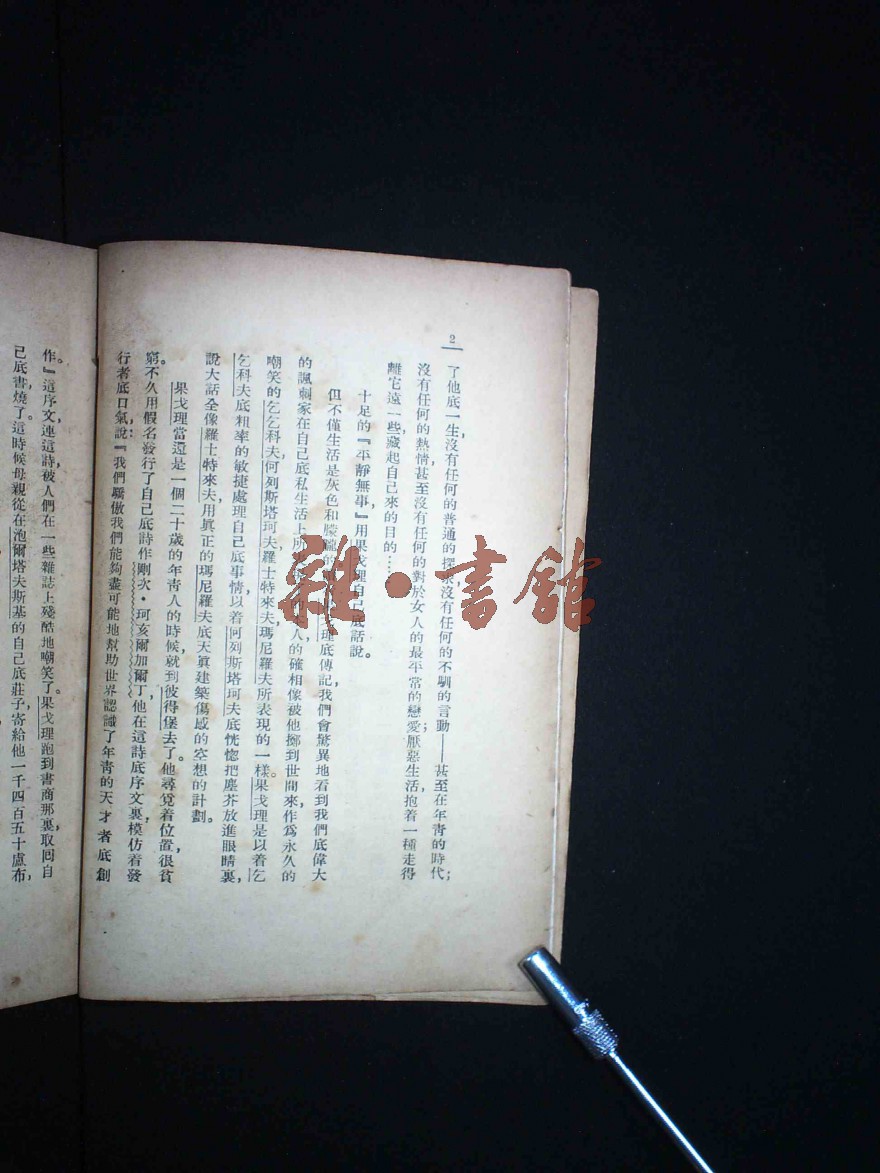 2
了他底一生，沒有任何的普通的探求，沒有任何的不馴的言動——甚至在年青的時代；
沒有任何的熱情，甚至沒有任何的對於女人的最平常的戀愛；厭惡生活，抱着一種走得
離它遠一些，藏起自己來的目的……
十足的『平靜無事』，用果戈理自己底話說。
但不僅生活是灰色和朦朧的
理底傳記，我們會驚異地看到我們底偉大
的諷刺家在自己底私生活上所
人的確相像被他擲到世間來，作爲永久的
嘲笑的乞乞科夫，何列斯塔珂夫，羅士特來夫，瑪尼羅夫所表現的一樣。果戈理是以着乞
乞科夫底粗率的敏捷處理自己底事情，以着何列斯塔珂夫底恍惚把塵芥放進眼睛裏，
說大話全像羅士特來夫，用眞正的瑪尼羅夫底天眞建築傷感的空想的計劃。
果戈理當還是一個二十歲的年青人的時候，就到彼得堡去了。他尋覓着位置，很貧
窮。不久用假名發行了自己底詩作剛次·珂亥爾加爾丁，他在這詩底序文裏模仿着發
行者底口氣，說：『我們驕傲我們能夠盡可能地幫助世界認識了年青的天才者底創
作。』這序文，連這詩，被人們在一些雜誌上殘酷地嘲笑了。果戈理跑到書商那裏，取回自
己底書，燒了。這時候，母親從在泡爾塔夫斯基的自己底莊子寄給他一千四百五十盧布，
雜·書館